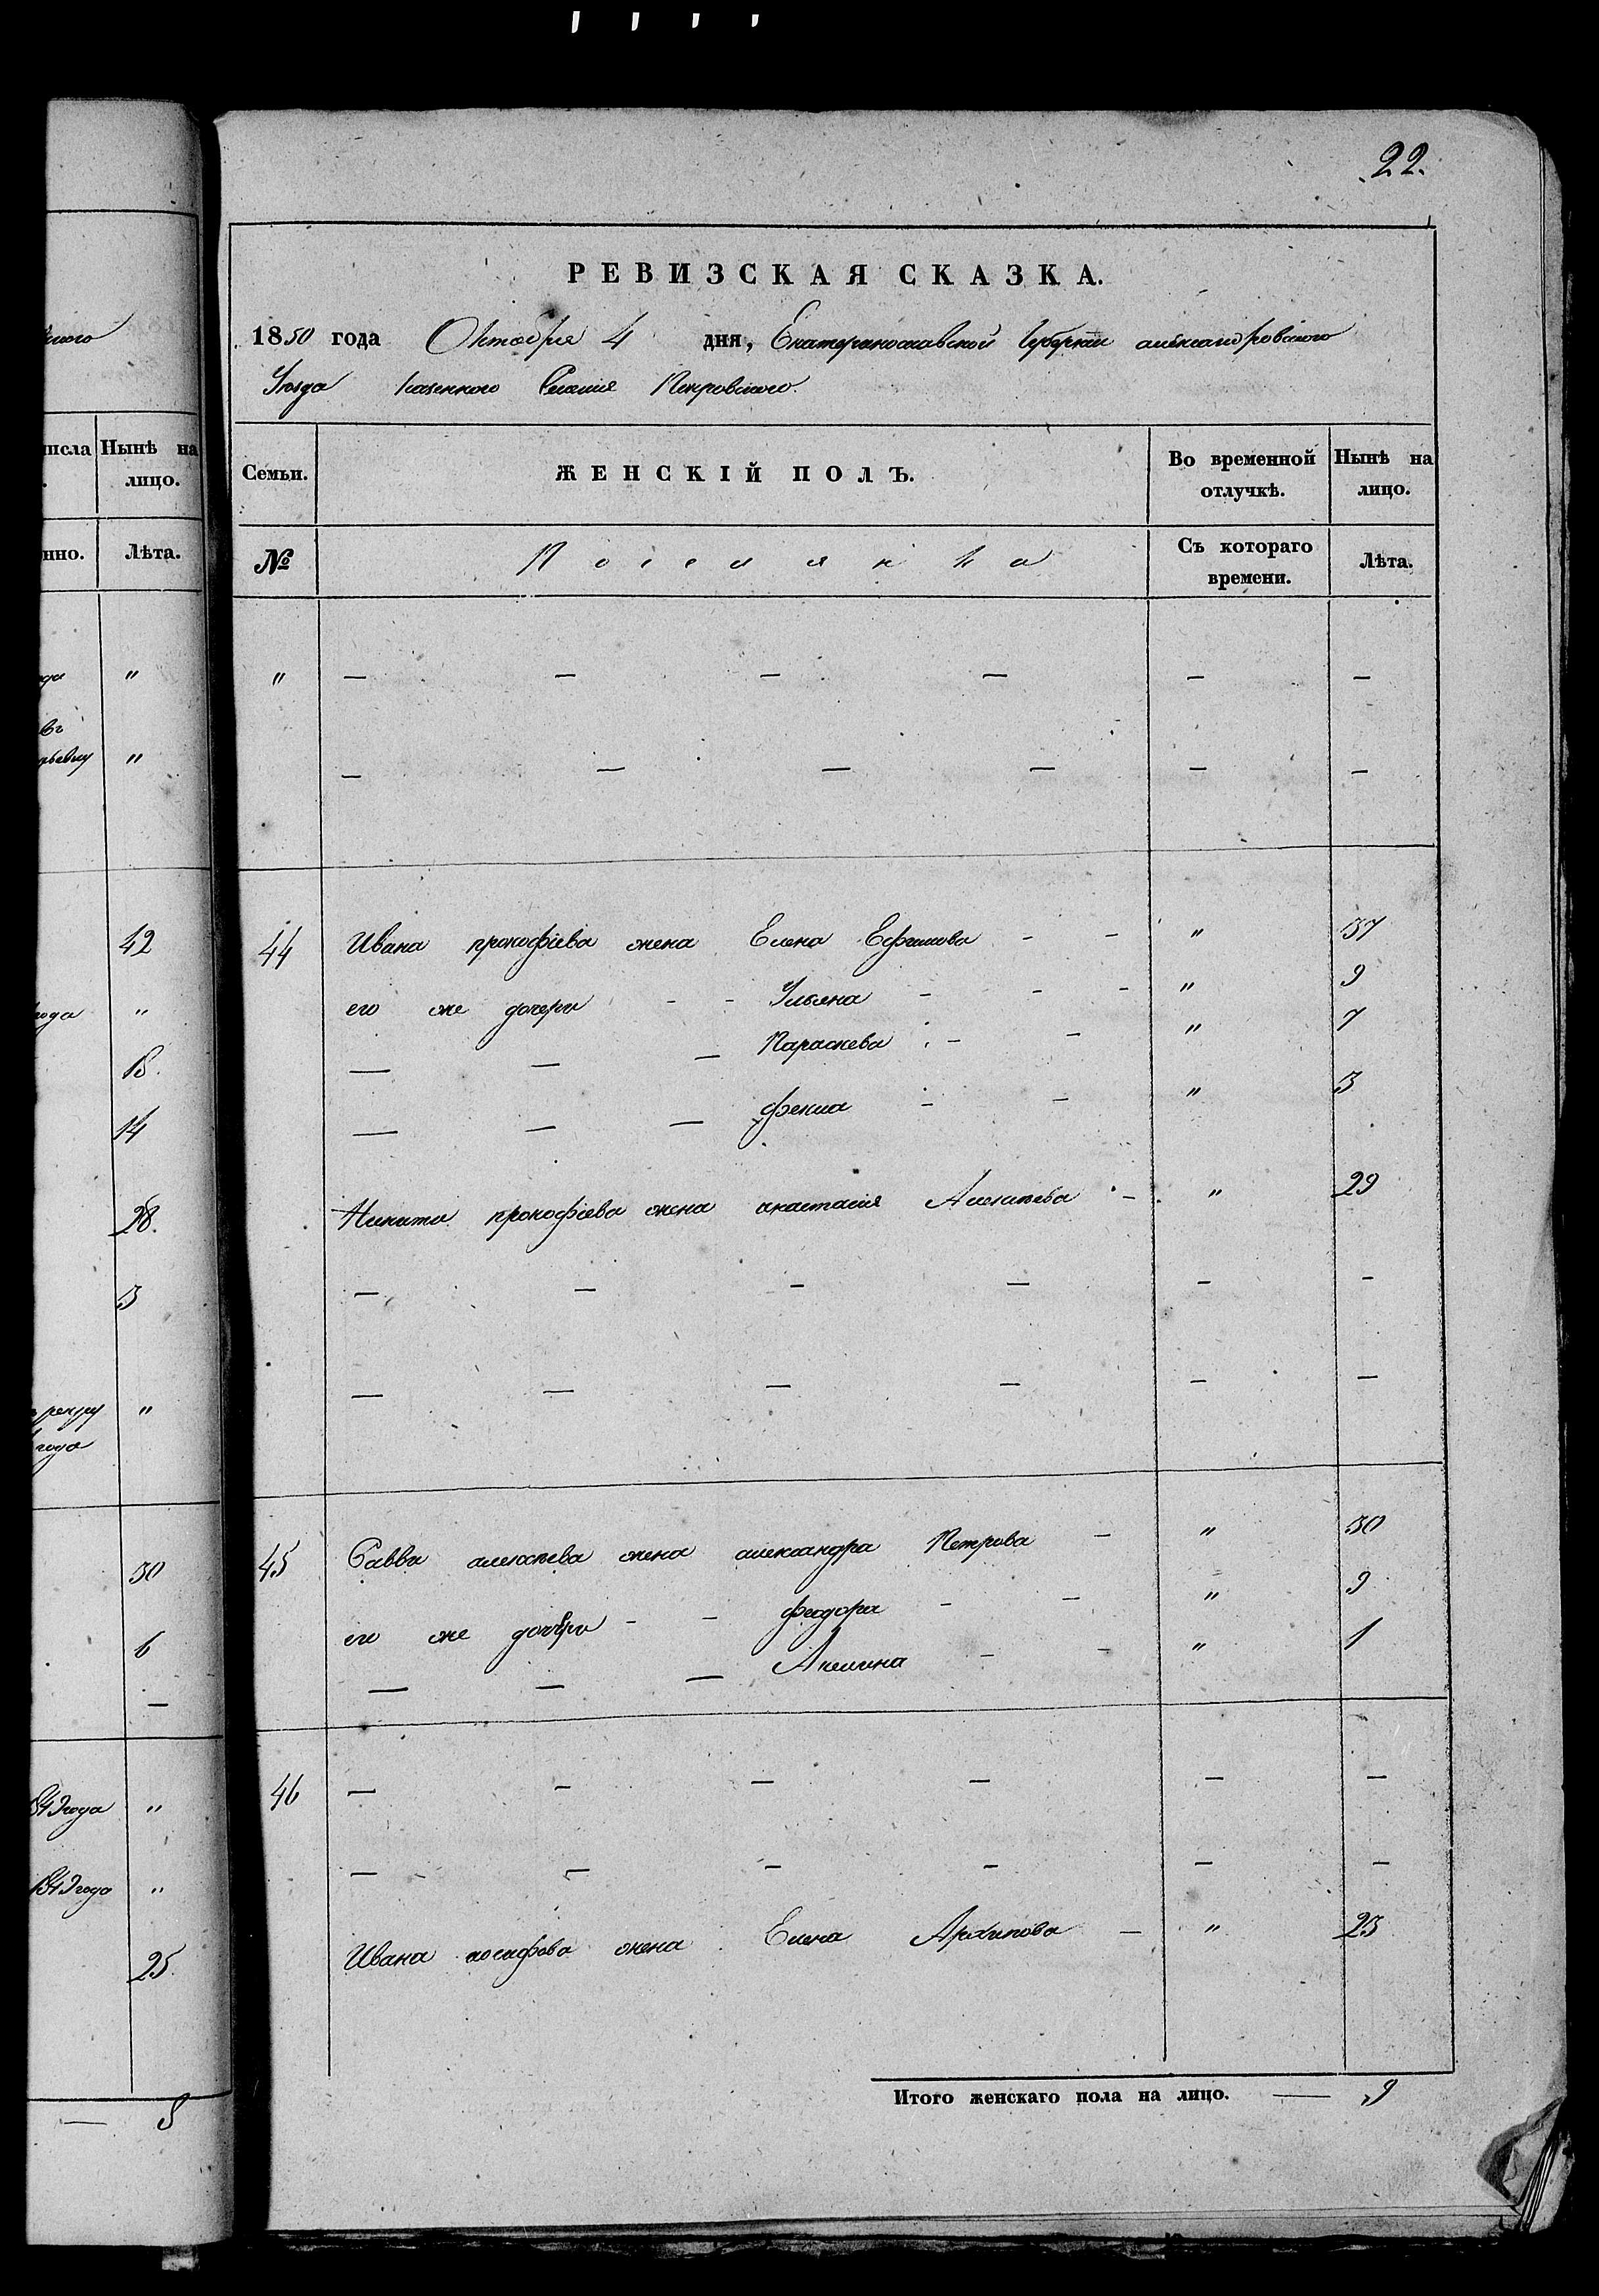 22.
РЕВИЗСКАЯ СКАЗКА.
1850 года Октября 4 дня, Екатеринославской Губерніи александровского
Уезда казенного Селенія Покровского.
Семьи. ЖЕНСКІЙ ПОЛЪ. Во временной отлучкѣ. Нынѣ на лицо.
№ Поселянка Съ котораго времени. Лѣта.
" — — — — — —
— — — — — —
44 Ивана прокофіева жена Елена Ефимова - - " 37
его же дочери - - Ульяна - - - " 9
— — — Параскева - - " 7
— — — фекла - - " 3
Никиты прокофіева жена анастасія Алексѣева - " 29
— — — — — -
— — — — — —
45 Саввы алексѣева жена александра Петрова — " 30
его же дочери - - феодора - - " 9
— — — Акилина - - " 1
46 — — — — — —
— — — — — —
Ивана иосифова жена Елена Архипова — " 23
Итого женскаго пола на лицо. — 9
ского
числа Нынѣ на
лицо.
нно. Лѣта.
ода "
въ
"
42
года "
18.
14
28.
3
"
года
30
6
—
1849 года "
1849 года "
25.
— 8